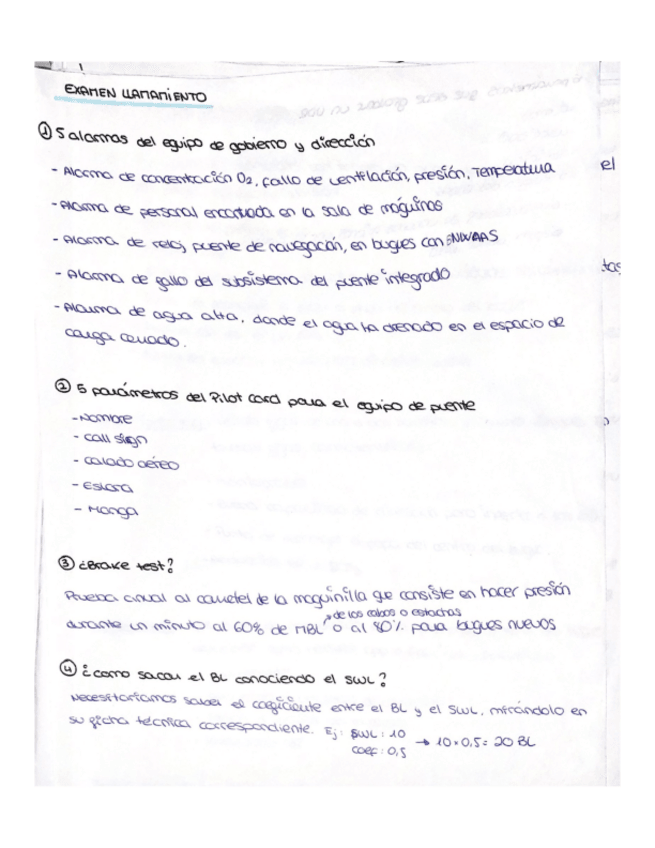 EXAMEN LLAMAMIENTO
① 5 alarmas del equipo de gobierno y dirección
- Alarma de concentración O2, fallo de ventilación, presión, temperatura
- Alarma de personal encontrada en la sala de máquinas
- Alarma de reloj puente de navegación, en buques con BNWAAS
- Alarma de fallo del subsistema del puente integrado
- Alarma de agua alta. donde el agua ha drenado en el espacio de
carga cerrado.
② 5 parámetros del Pilot card para el equipo de puente
- Nombre
- call sign
- calado aéreo
- Eslora
- Manga
③ ¿Brake test?
Prueba anual al carretel de la maquinilla que consiste en hacer presión
de los cabos o estachas
durante un minuto al 60% de MBL o al 80% para buques nuevos
④ ¿como sacar el BL conociendo el SWL?
Necesitaríamos saber el coeficiente entre el BL y el SWL, mirándolo en
su ficha técnica correspondiente. Ej: SWL: 10
coef: 0,5 → 10×0,5= 20 BL
el
tas